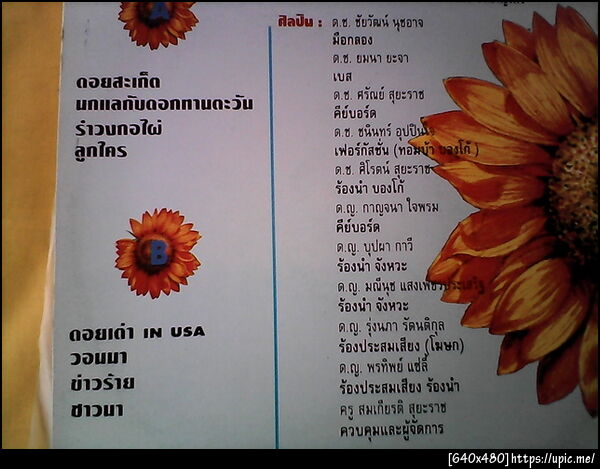 A
ดอยสะเก็ด
นกแลกับดอกทานตะวัน
รำวงกอไผ่
ลูกใคร
B
ดอยเต่า IN USA
วอนมา
ข่าวร้าย
ชาวนา
ศิลปิน :
ด.ช. ชัยวัฒน์ นุชอาจ
มือกลอง
ด.ช. ยมนา ยะจา
เบส
ด.ช. ศรัณย์ สุยะราช
คีย์บอร์ด
ด.ช. ชนินทร์ อุปปินใจ
เฟอร์กัสชั่น (ทอมบ้า บองโก้ )
ด.ช. ศิโรดน์ สุยะราช
ร้องนำ บองโก้
ด.ญ. กาญจนา ใจพรม
คีย์บอร์ด
ด.ญ. บุปผา กาวี
ร้องนำ จังหวะ
ด.ญ. มณีนุช แสงเพชรประเสริฐ
ร้องนำ จังหวะ
ด.ญ. รุ่งนภา รัตนติกุล
ร้องประสมเสียง (โฆษก)
ด.ญ. พรทิพย์ แซ่ลี้
ร้องประสมเสียง ร้องนำ
ครู สมเกียรติ สุยะราช
ควบคุมและผู้จัดการ
[640x480]https://upic.me/